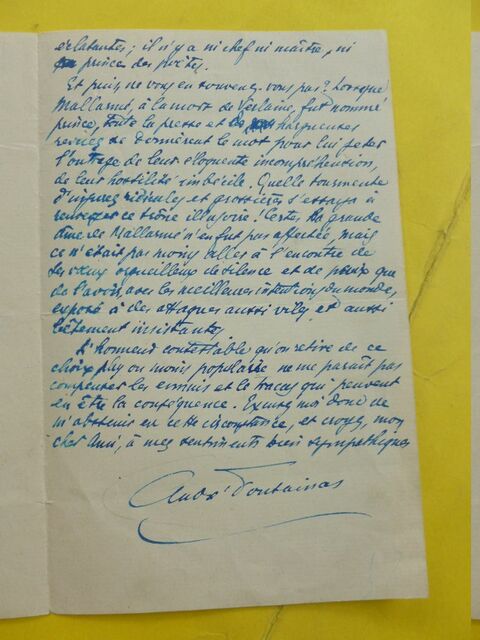 éclatantes ; il n'y a ni chef ni maître, ni
prince des poètes.
Et puis, ne vous en souvenez-vous pas ? Lorsque
Mallarmé, à la mort de Verlaine, fut nommé
prince, toute la presse et les hargneuses
revues se donnèrent le mot pour lui jeter
l'outrage de leur éloquente incompréhension,
de leur hostilité imbécile. Quelle tourmente
d'injures ridicules et grossières s'essaya à
renverser ce trône illusoire ! Certes la grande
âme de Mallarmé n'en fut pas affectée, mais
ce n'était pas moins aller à l'encontre de
ses vœux orgueilleux de silence et de paix que
de l'avoir, avec les meilleures intentions du monde,
exposé à des attaques aussi viles et aussi
bêtement insistantes.
L'honneur contestable qu'on retire de ce
choix plus ou moins popularisé ne me paraît pas
compenser les ennuis et le tracas qui peuvent
en être la conséquence. Excusez-moi donc de
m'abstenir en cette circonstance, et croyez, mon
cher Ami, à mes sentiments bien sympathiques
André Fontainas